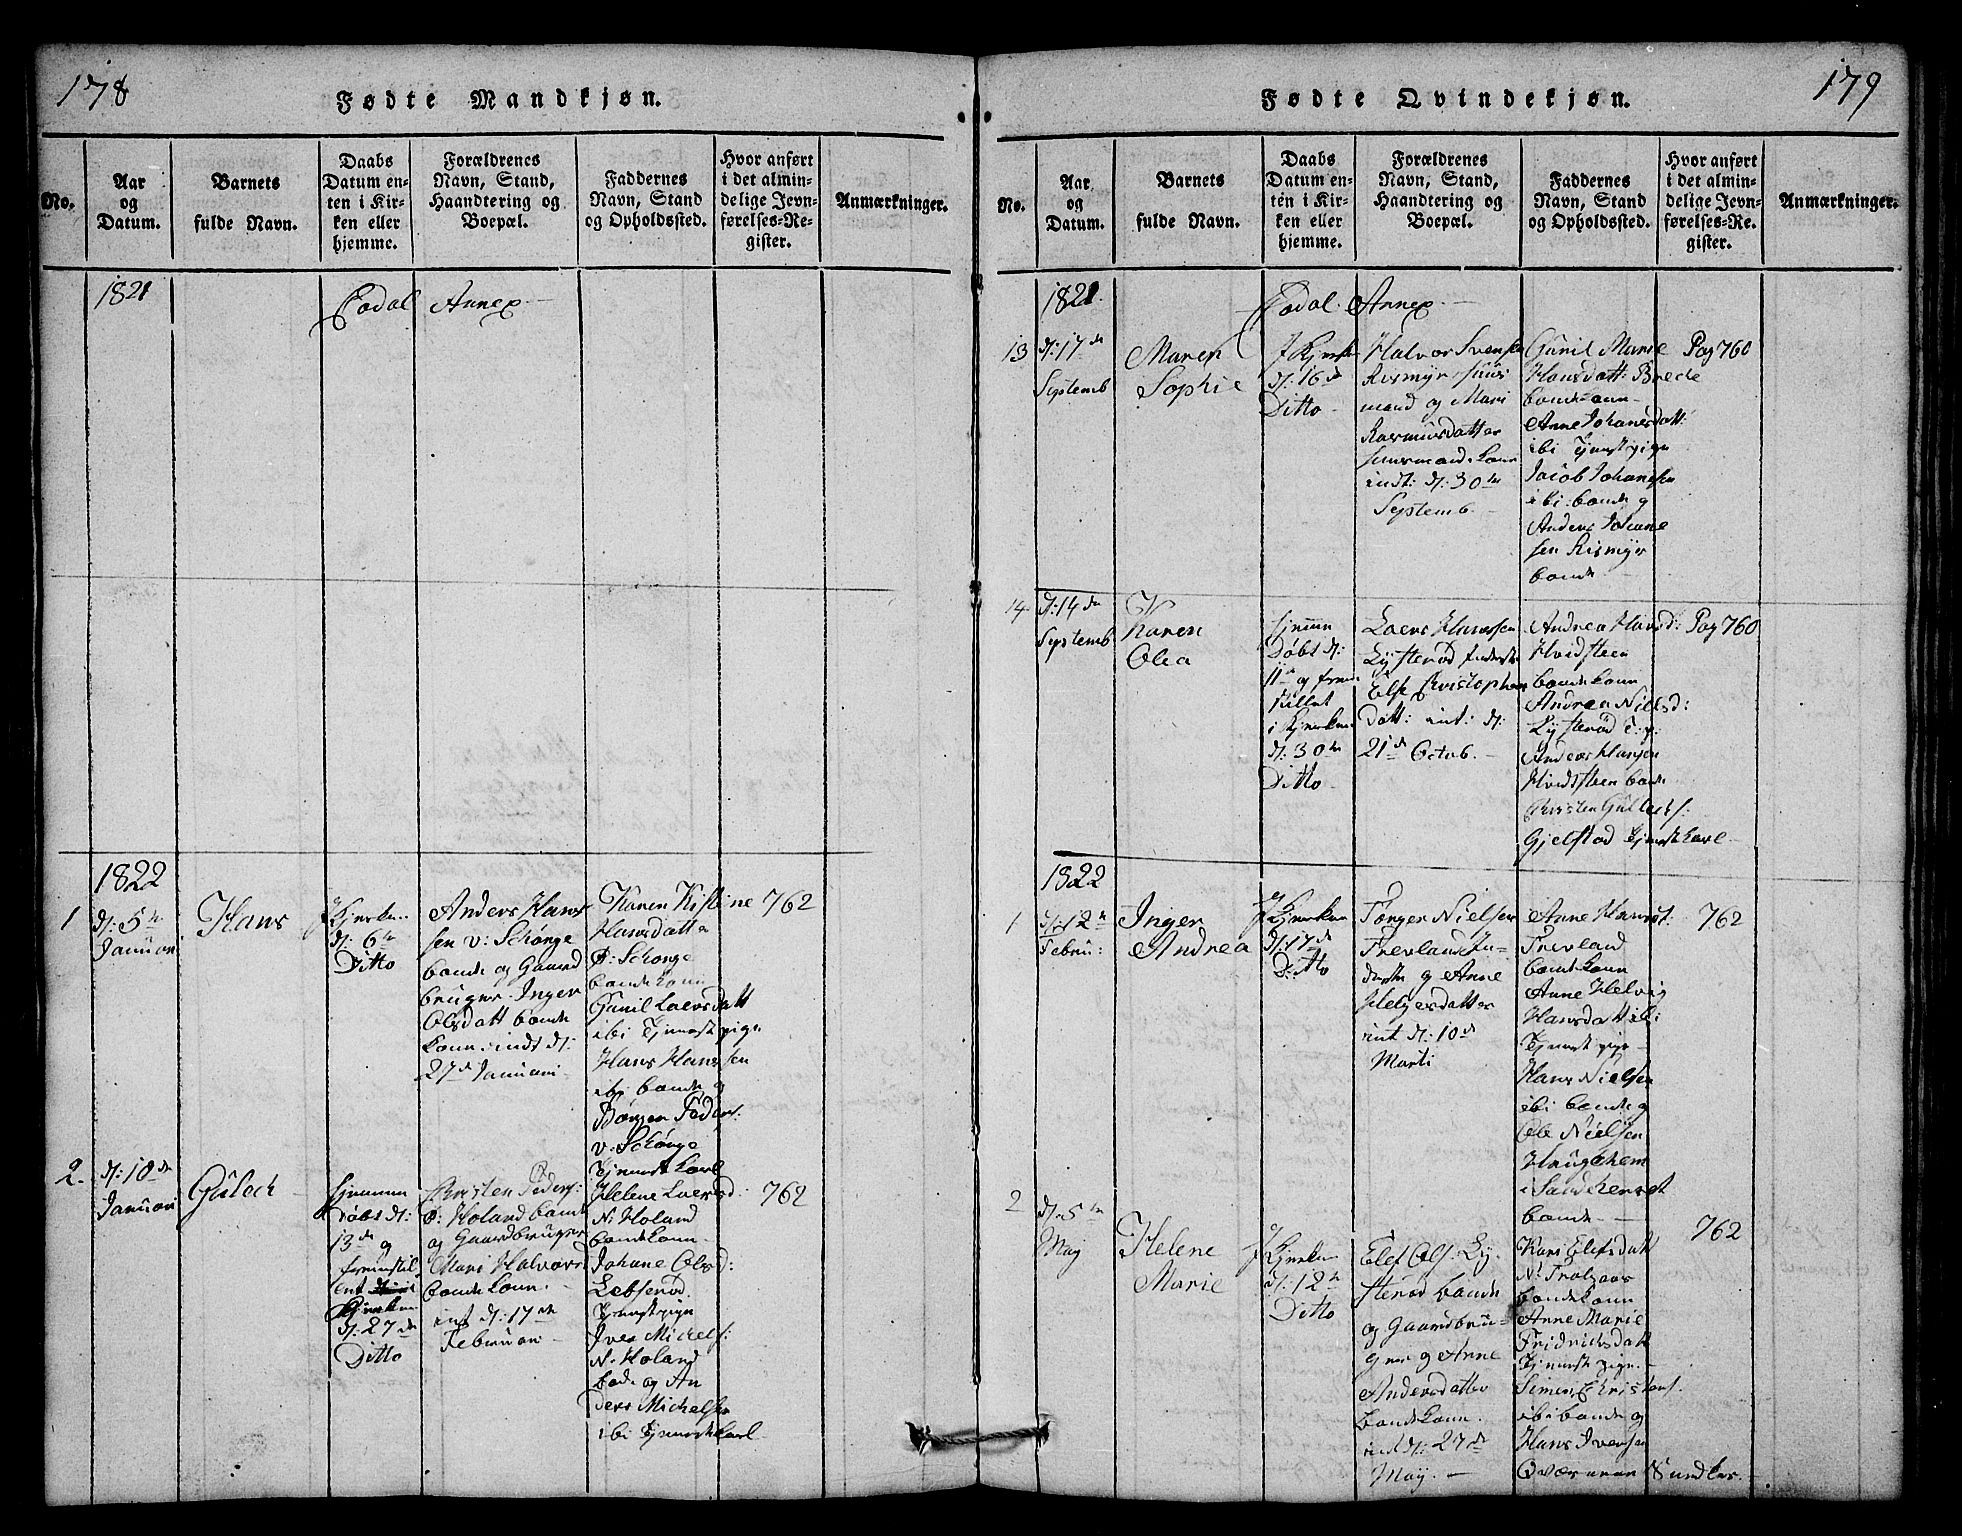 178
Fødte Mandkjøn.
No.
Aar
og
Datum.
Barnets
fulde Navn.
Daabs
Datum en-
ten i Kir-
ken eller
hjemme.
Forældrenes
Navn, Stand,
Haandtering og
Boepæl.
Faddernes
Navn, Stand
og Opholdssted.
Hvor anført
i det almin-
delige Jevn-
førelses-Re-
gister.
Anmærkninger.
1821
Annex
1822
1
d: 5te
Januari
Hans
d: 6te
Ditto
Anders Han
sen v: Schønge
bonde og Gaard
bruger. Inger
Olsdatt bonde
kone. indt d:
27de Januari
Karen Kistine
Hansdatte
Schønge
bondekone
Gunil Laersdatt
ibi Tjenestpige
Hans Hansen
ibi bonde og
Børger Peders:
v: Schønge
Tjenestkarl
762
2.
d: 10de
Januari
Gulech
hjemme
Døbt d:
13de og
d: 27de
Ditto
Christen Peders:
Holand bonde
og Gaardbruger
Mari Halvors
bondekone.
int d: 17de
Februari
Helene Laersd:
N: Holand
bondekone.
Johane Olsd:
Lebserød.
Tjenestpige
Iver Michels:
N: Holand
bonde og An
ders Michelsen
ibi Tjenestkarl
762
179
Fødte Qvindekjøn.
No.
Aar
og
Datum.
Barnets
fulde Navn.
Daabs
Datum en-
ten i Kir-
ken eller
hjemme.
Forældrenes
Navn, Stand,
Haandtering og
Boepæl.
Faddernes
Navn, Stand
og Opholdssted.
Hvor anført
i det almin-
delige Jevn-
førelses-Re-
gister.
Anmærkninger.
1821.
Annex
13
d: 17de
Septemb
Maren
Sophie
d: 16de
Ditto
Halvor Svensen
Rismyr huus
mand og Mari
Rasmusdatter
huusmandskone
indt: d: 30te
Septemb
Gunil Marie
Hansdatt: Brede
bondekone
Anne Johansdatt:
ibi Tjenestpige
Jacob Johansen
ibi bonde og
Anders Johane
sen Rismyr
bonde
Pag 760
14
d: 14de
Septemb
Karen
Olea
hjemme
Døbt d:
11te og frem
stillet
i Kjerken
d: 30te
Ditto
Laers Hansen
Lysterød
Else Christophers
Datt: int: d:
21de Octob.
Andrea Hansd:
Hvidsteen
bondekone
Andrea Nielsd:
Lysterød T: p:
Anders Hansen
Hvidsteen bonde
Christen Gullechs:
Gjelstad Tjenestkarl
Pag 760
1822
1
d: 12te
Febru:
Inger
Andrea
I Kjerken
d: 17de
Ditto
Tørger Nielsen
Trevland In-
derste og Anne
Helgersdatter
int d: 10de
Marti
Anne Hansd:
Trevland
bondekone
Anne Helvig
Hansdatt ibi
Tjenestpige
Hans Nielsen
ibi bonde og
Ole Nielsen
Haugehem
i Sandhered
bonde
762
2
d: 5te
Maj
Helene
Marie
I Kjerken
d: 12te
Ditto
Elef Ols: Ly-
sterød bonde
og Gaardbru-
ger og Anne
Andersdatter
bondekone.
int d: 27de
Maj.
Kari Elefsdatt
bondekone
Anne Marie
Fridrichsdatt
Tjenestpige.
Simen Christens:
ibi bonde og
Hans Iversen
762